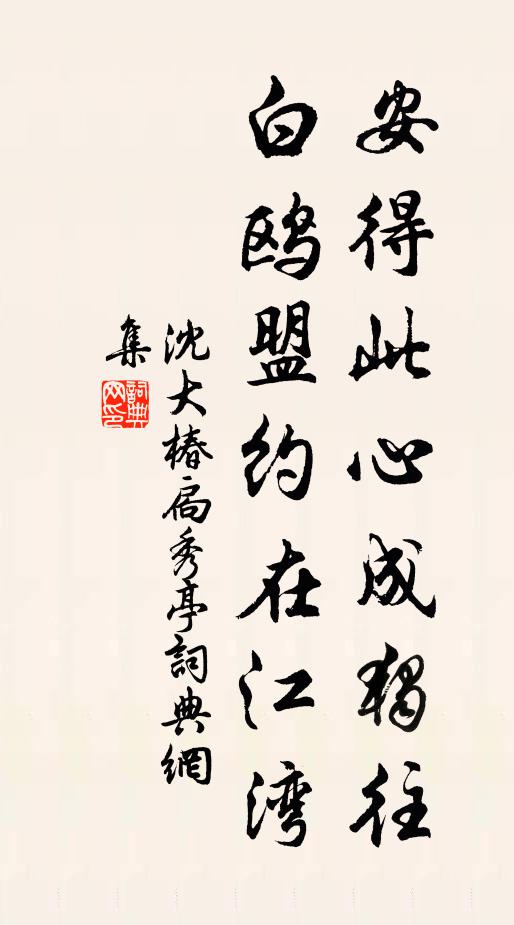 安得此心成独往
白鸥盟约在江湾
沈大椿扁秀亭詞典網
集
詞典網印